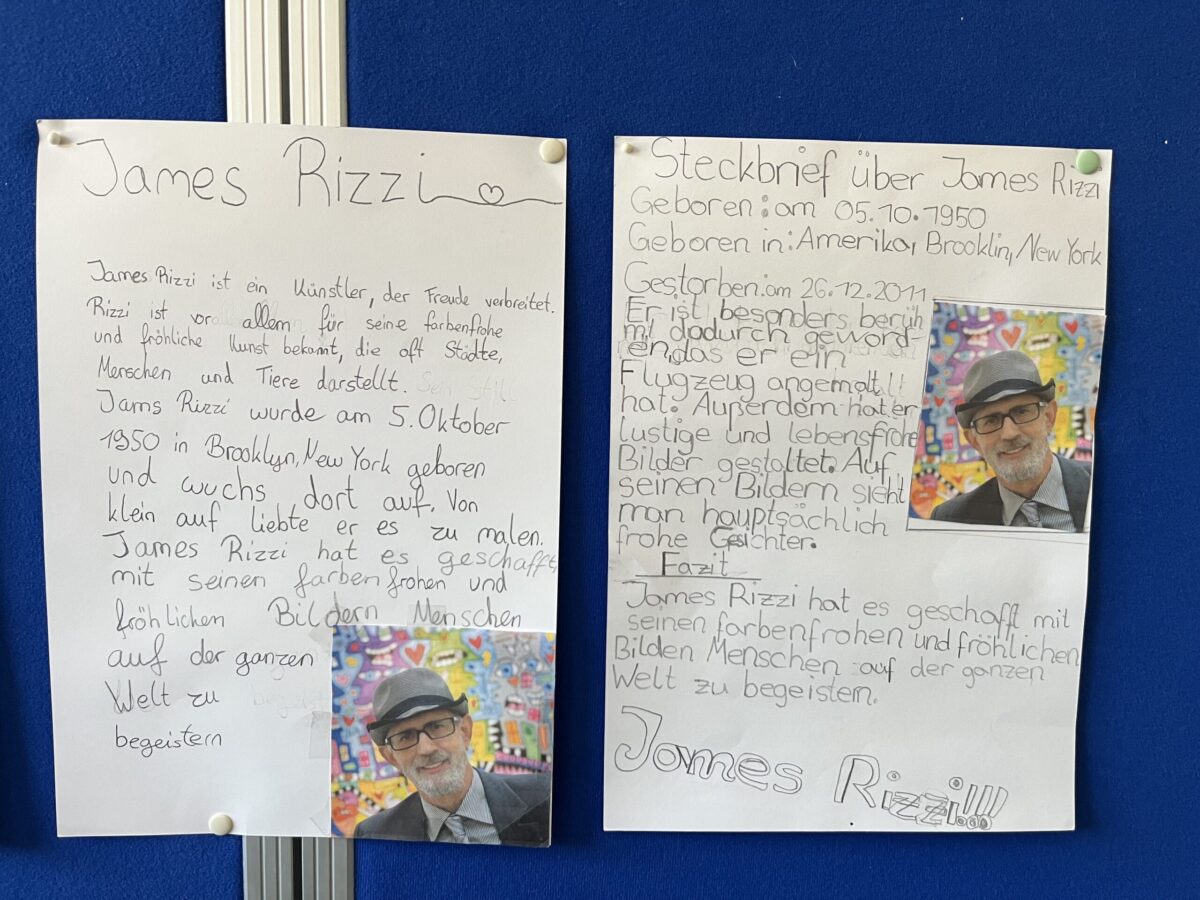 James Rizzi
James Rizzi ist ein Künstler, der Freude verbreitet.
Rizzi ist vor allem für seine farbenfrohe
und fröhliche Kunst bekannt, die oft Städte,
Menschen und Tiere darstellt.
Jams Rizzi wurde am 5. Oktober
1950 in Brooklyn, New York geboren
und wuchs dort auf. Von
klein auf liebte er es zu malen.
James Rizzi hat es geschafft,
mit seinen farbenfrohen und
fröhlichen Bildern Menschen
auf der ganzen
Welt zu
begeistern
Steckbrief über James Rizzi
Geboren: am 05.10.1950
Geboren in: Amerika, Brooklin, New York
Gestorben: am 26.12.2011
Er ist besonders berüh
mt dadurch geword-
en, das er ein
Flugzeug angemalt
hat. Außerdem hat er
lustige und lebensfrohe
Bilder gestaltet. Auf
seinen Bildern sieht
man hauptsächlich
frohe Gsichter.
Fazit
James Rizzi hat es geschafft mit
seinen farbenfrohen und fröhlichen
Bilden Menschen auf der ganzen
Welt zu begeistern.
James Rizzi!!!